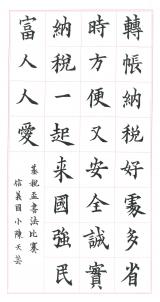 轉帳納稅好處多省
時方便又安全誠實
納稅一起來國強民
富人人愛
基稅盃書法比賽
信義國小陳天芸